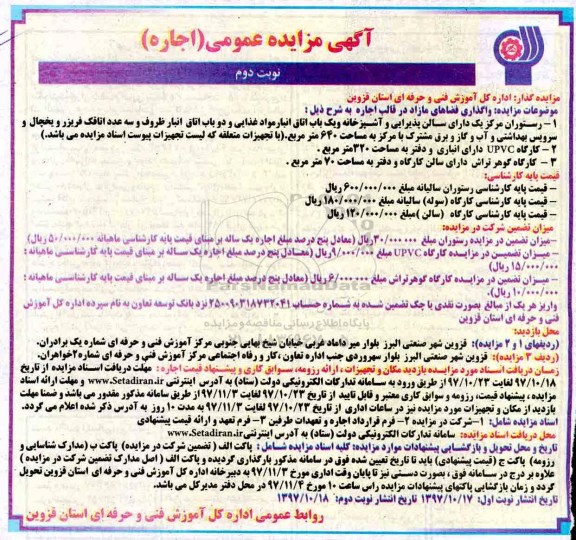 آگهی مزایده عمومی(اجاره)
نوبت دوم
مزایده گذار: اداره کل آموزش فنی و حرفه ای استان قزوین
موضوعات مزایده: واگذاری فضاهای مازاد در قالب اجاره به شرح ذیل :
۱ – رستوران مرکز یک دارای سالن پذیرایی و آشپزخانه ویک باب اتاق انبارمواد غذایی و دو باب اتاق انبار ظروف و سه عدد اتاقک فریزر و یخچال و
سرویس بهداشتی و آب و گاز و برق مشترک با مرکز به مساحت ۶۴۰ متر مربع.(با تجهیزات متعلقه که لیست تجهیزات پیوست اسناد مزایده می باشد.)
۲ – کارگاه UPVC دارای انباری و دفتر به مساحت ۳۲۰متر مربع .
۳ – کارگاه گوهر تراش دارای سالن کارگاه و دفتر به مساحت ۷۰ متر مربع .
قیمت پایه کارشناسی:
– قیمت پایه کارشناسی رستوران سالیانه مبلغ ۶۰۰/۰۰۰/۰۰۰ ریال
– قیمت پایه کارشناسی کارگاه (سوله) سالیانه مبلغ ۱۸۰/۰۰۰/۰۰۰ ریال
– قیمت پایه کارشناسی کارگاه (سالن )مبلغ ۱۲۰/۰۰۰/۰۰۰ ریال
میزان تضمین شرکت در مزایده:
–میزان تضمین در مزایده رستوران مبلغ ۳۰/۰۰۰/۰۰۰ریال (معادل پنج درصد مبلغ اجاره یک ساله بر مبنای قیمت پایه کارشناسی ماهیانه ۵۰/۰۰۰/۰۰۰ ریال)
– میزان تضمین در مزایده کارگاه UPVC مبلغ ۹/۰۰۰/۰۰۰ریال (معادل پنج درصد مبلغ اجاره یک ساله بر مبنای قیمت پایه کارشناسی ماهیانه :
۱۵/۰۰۰/۰۰۰ ریال)
– میزان تضمین در مزایده کارگاه گوهرتراش مبلغ ۶/۰۰۰/۰۰۰ ریال (معادل پنج درصد مبلغ اجاره یک ساله بر مبنای قیمت پایه کارشناسی ماهیانه :
۱۰/۰۰۰/۰۰۰ ریال).
واریز هر یک از مبالغ بصورت نقدی یا چک تضمین شده به شماره حساب ۲۵۰۰۹۰۳۱۸۷۳۲۰۴۱ نزد بانک توسعه تعاون به نام سپرده اداره کل آموزش
فنی و حرفه ای استان قزوین
محل بازدید:
(ردیفهای ۱ و ۲ مزایده): قزوین شهر صنعتی البرز بلوار میر داماد غربی خیابان شیخ بهایی جنوبی مرکز آموزش فنی و حرفه ای شماره یک برادران.
(ردیف ۳ مزایده): قزوین شهر صنعتی البرز بلوار سهروردی جنب اداره تعاون ،کار و رفاه اجتماعی مرکز آموزش فنی و حرفه ای شماره۲خواهران.
زمان دریافت اسناد مورد مزایده بازدید مکان و تجهیزات ، ارائه رزومه، سوابق کاری و پیشنهاد قیمت اجاره : مهلت دریافت اسناد مزایده از تاریخ
۹۷/۱۰/۱۸ لغایت ۹۷/۱۰/۲۳ از طریق ورود به سامانه تدارکات الکترونیکی دولت (ستاد) به آدرس اینترنتی www.Setadiran.ir و مهلت ارائه اسناد
مزایده ، پیشنهاد قیمت، رزومه و سوابق کاری معتبر و قابل تایید از تاریخ ۹۷/۱۰/۲۳ لغایت ۹۷/۱۱/۳ از طریق سامانه مذکور مقدور می باشد و ضمنا مهلت
بازدید از مکان و تجهیزات مورد مزایده نیز در ساعات اداری از تاریخ ۹۷/۱۰/۲۳ لغایت ۹۷/۱۱/۳ به مدت ۱۰ روز به آدرس ذکر شده اعلام می گردد.
اسناد مزایده شامل: ۱–شرکت در مزایده ۲– فرم قرارداد اجاره و تعهدات طرفین ۳– فرم تعهد و ارائه قیمت پیشنهادی
محل دریافت اسناد مزایده: سامانه تدارکات الکترونیکی دولت (ستاد) به آدرس اینترنتیwww.Setadiran.ir
تاریخ و محل تحویل و بازگشایی پیشنهادات موارد مزایده: کلیه اسناد مزایده شامل : پاکت الف (تضمین شرکت در مزایده) پاکت ب (مدارک شناسایی و
رزومه) پاکت ج (قیمت پیشنهادی) باید تا تاریخ تعیین شده فوق در سامانه مذکور بارگذاری گردیده و پاکت الف ( اصل مدارک تضمین شرکت در مزایده )
علاوه بر درج در سامانه فوق ، بصورت دستی نیز تا پایان وقت اداری مورخ ۹۷/۱۱/۳ به دبیرخانه اداره کل آموزش فنی و حرفه ای استان قزوین تحویل
گردد و زمان بازگشایی پاکتهای پیشنهادات مزایده راس ساعت ۱۰ مورخ ۹۷/۱۱/۴ در محل دفتر مدیرکل می باشد.
تاریخ انتشار نوبت اول: ۱۳۹۷/۱۰/۱۷ تاریخ انتشار نوبت دوم: ۱۳۹۷/۱۰/۱۸
روابط عمومی اداره کل آموزش فنی و حرفه ای استان قزوین
ParsNamadData
پایگاه اطلاع رسانی مناقصه و مزایده